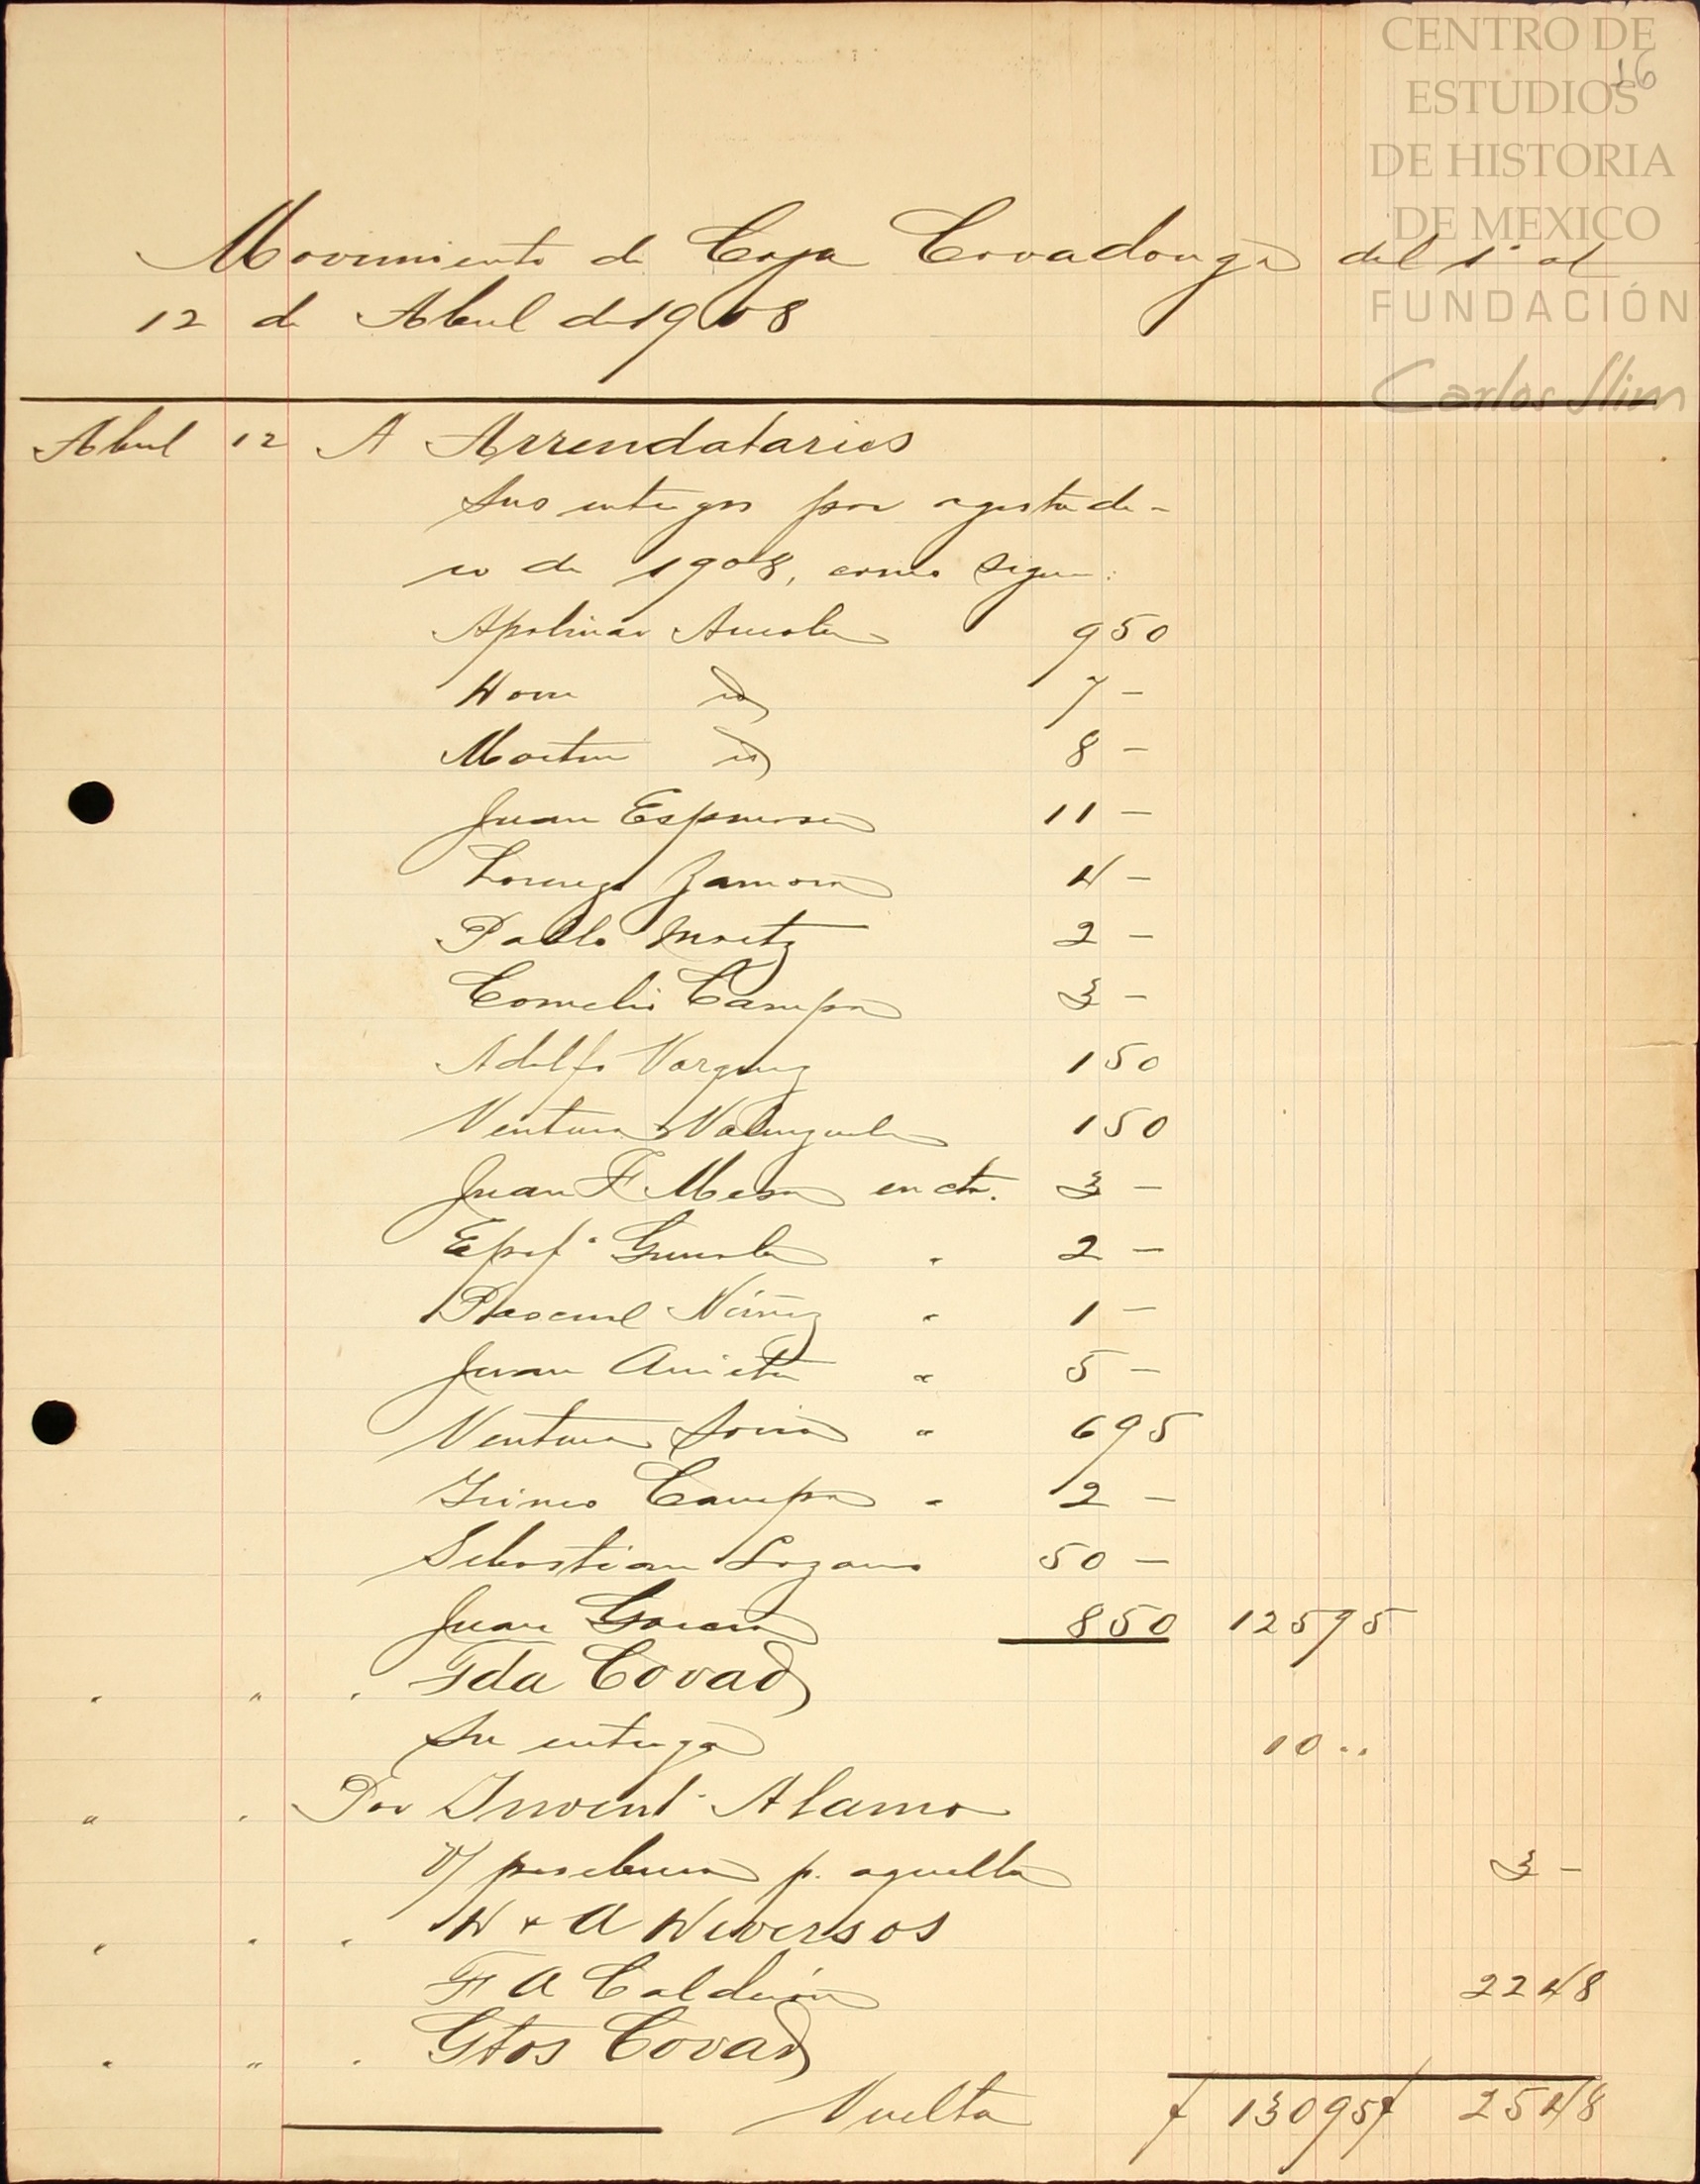 CENTRO DE
ESTUDIOS
DE HISTORIA
DE MEXICO
FUNDACIÓN
Carlos Slim
16
Movimiento de Caja Covadonga del 1º al
12 de Abril de 1908
Abril 12 A Arrendatarios
Sus entregas por agostade-
ro de 1908, como sigue:
Apolinar 950
id 7 -
Martin id 8 -
Juan Espinosa 11 -
Lorenzo Zamora 4 -
Pablo Mrtz 2 -
Cornelio Campa 3 -
Adolfo Vazquez 150
Ventura Valenzuela 150
Juan F Mesa en cta. 3 -
Epifº " 2 -
Pascual Núñez " 1 -
Juan Arrieta " 5 -
Ventura Soria " 695
Irineo Campa " 2 -
Sebastian Lozano 50 -
Juan Garcia 850 12595
" " " Fda Covad
Su entrega 10 ..
" " Por Invent Alamo
p. aquella 3 -
" " " H & A Diversos
F A Calderón 2248
" " " Gtos Covad
Vuelta $ 13095 $ 2548